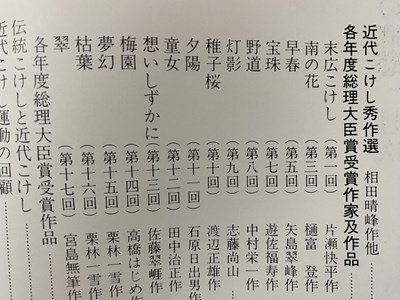 近代こけし秀作選 相田晴峰作他
各年度総理大臣賞受賞作家及作品
末広こけし（第一回）片瀬快平作
南の花（第三回）樋富 登作
早春（第五回）矢島琴峰作
宝珠（第七回）遊佐福寿作
野道（第八回）中村栄一作
灯影（第九回）志藤尚山
稚子桜（第十回）渡辺正雄作
夕陽（第十一回）石原日出男作
童女（第十二回）田中治正作
想いしずかに（第十三回）佐藤翠崕作
梅園（第十四回）高橋はじめ作
夢幻（第十五回）栗林一雪作
枯葉（第十六回）栗林一雪作
翠（第十七回）宮島無筆作
各年度総理大臣賞受賞作品
伝統こけしと近代こけし
近代こけし運動の回顧